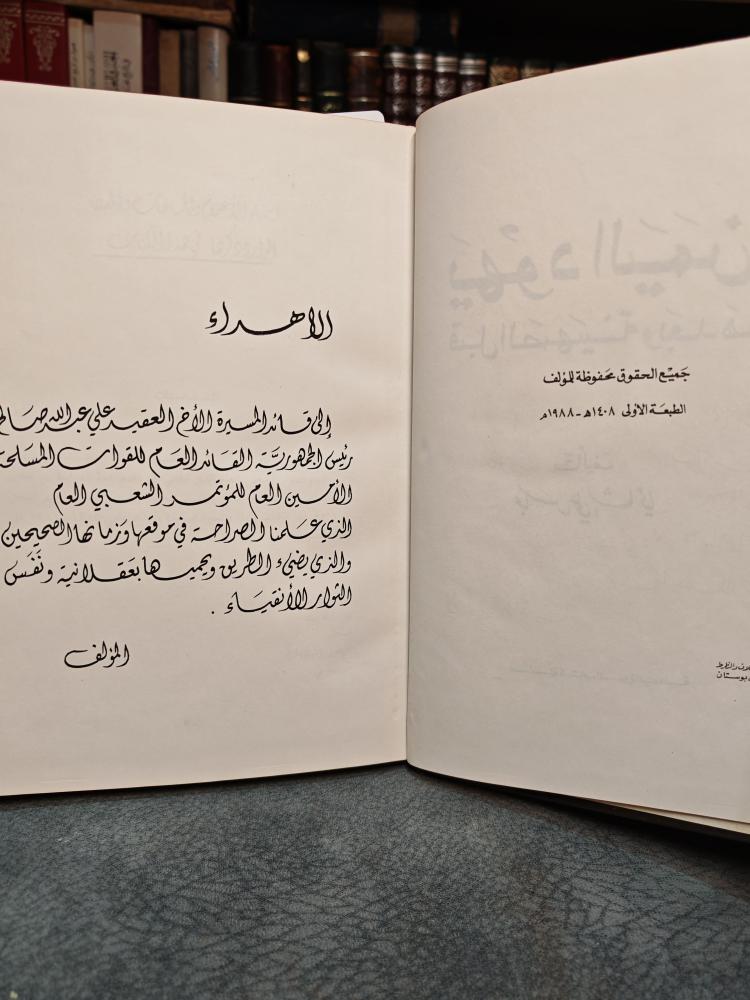 جميع الحقوق محفوظة للمؤلف
الطبعة الأولى ١٤٠٨هـ - ١٩٨٨م
الاهداء
إلى قائد المسيرة الأخ العقيد علي عبدالله صالح
رئيس الجمهورية القائد العام للقوات المسلحة
الأمين العام للمؤتمر الشعبي العام
الذي علمنا الصراحة في موقعها وزمانها الصحيحين
والذي يضيء الطريق ويحميها بعقلانية ونفس
الثوار الأنقياء .
المؤلف